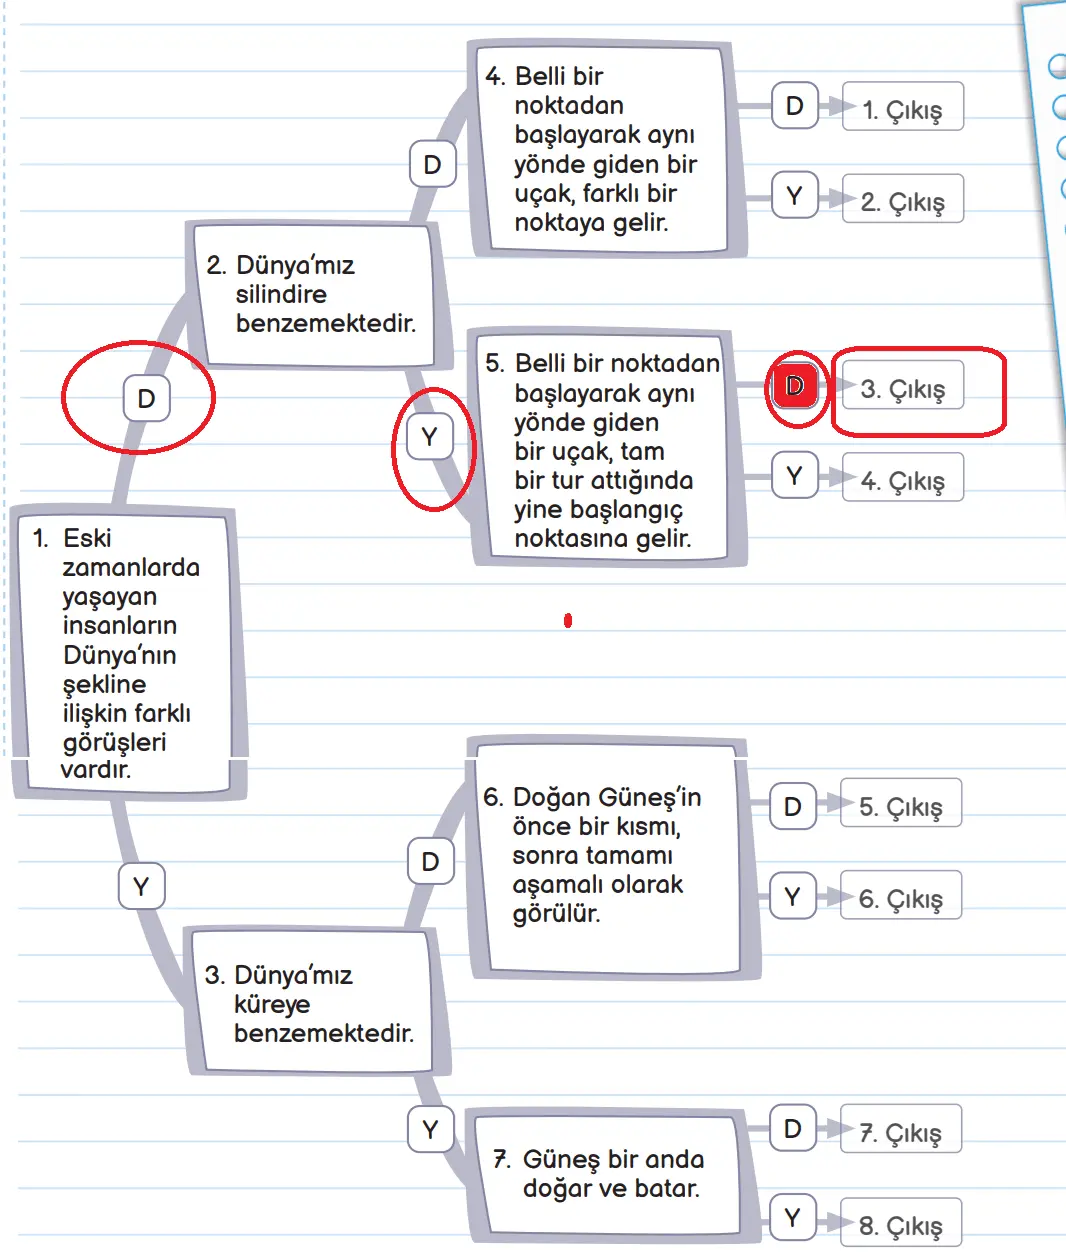 4. Belli bir
noktadan
başlayarak aynı
yönde giden bir
uçak, farklı bir
noktaya gelir.
D
1. Çıkış
Y
2. Çıkış
D
2. Dünya'mız
silindire
benzemektedir.
D
Y
5. Belli bir noktadan
başlayarak aynı
yönde giden
bir uçak, tam
bir tur attığında
yine başlangıç
noktasına gelir.
D
3. Çıkış
Y
4. Çıkış
1. Eski
zamanlarda
yaşayan
insanların
Dünya'nın
şekline
ilişkin farklı
görüşleri
vardır.
Y
6. Doğan Güneş'in
önce bir kısmı,
sonra tamamı
aşamalı olarak
görülür.
D
5. Çıkış
Y
6. Çıkış
D
3. Dünya'mız
küreye
benzemektedir.
Y
7. Güneş bir anda
doğar ve batar.
D
7. Çıkış
Y
8. Çıkış